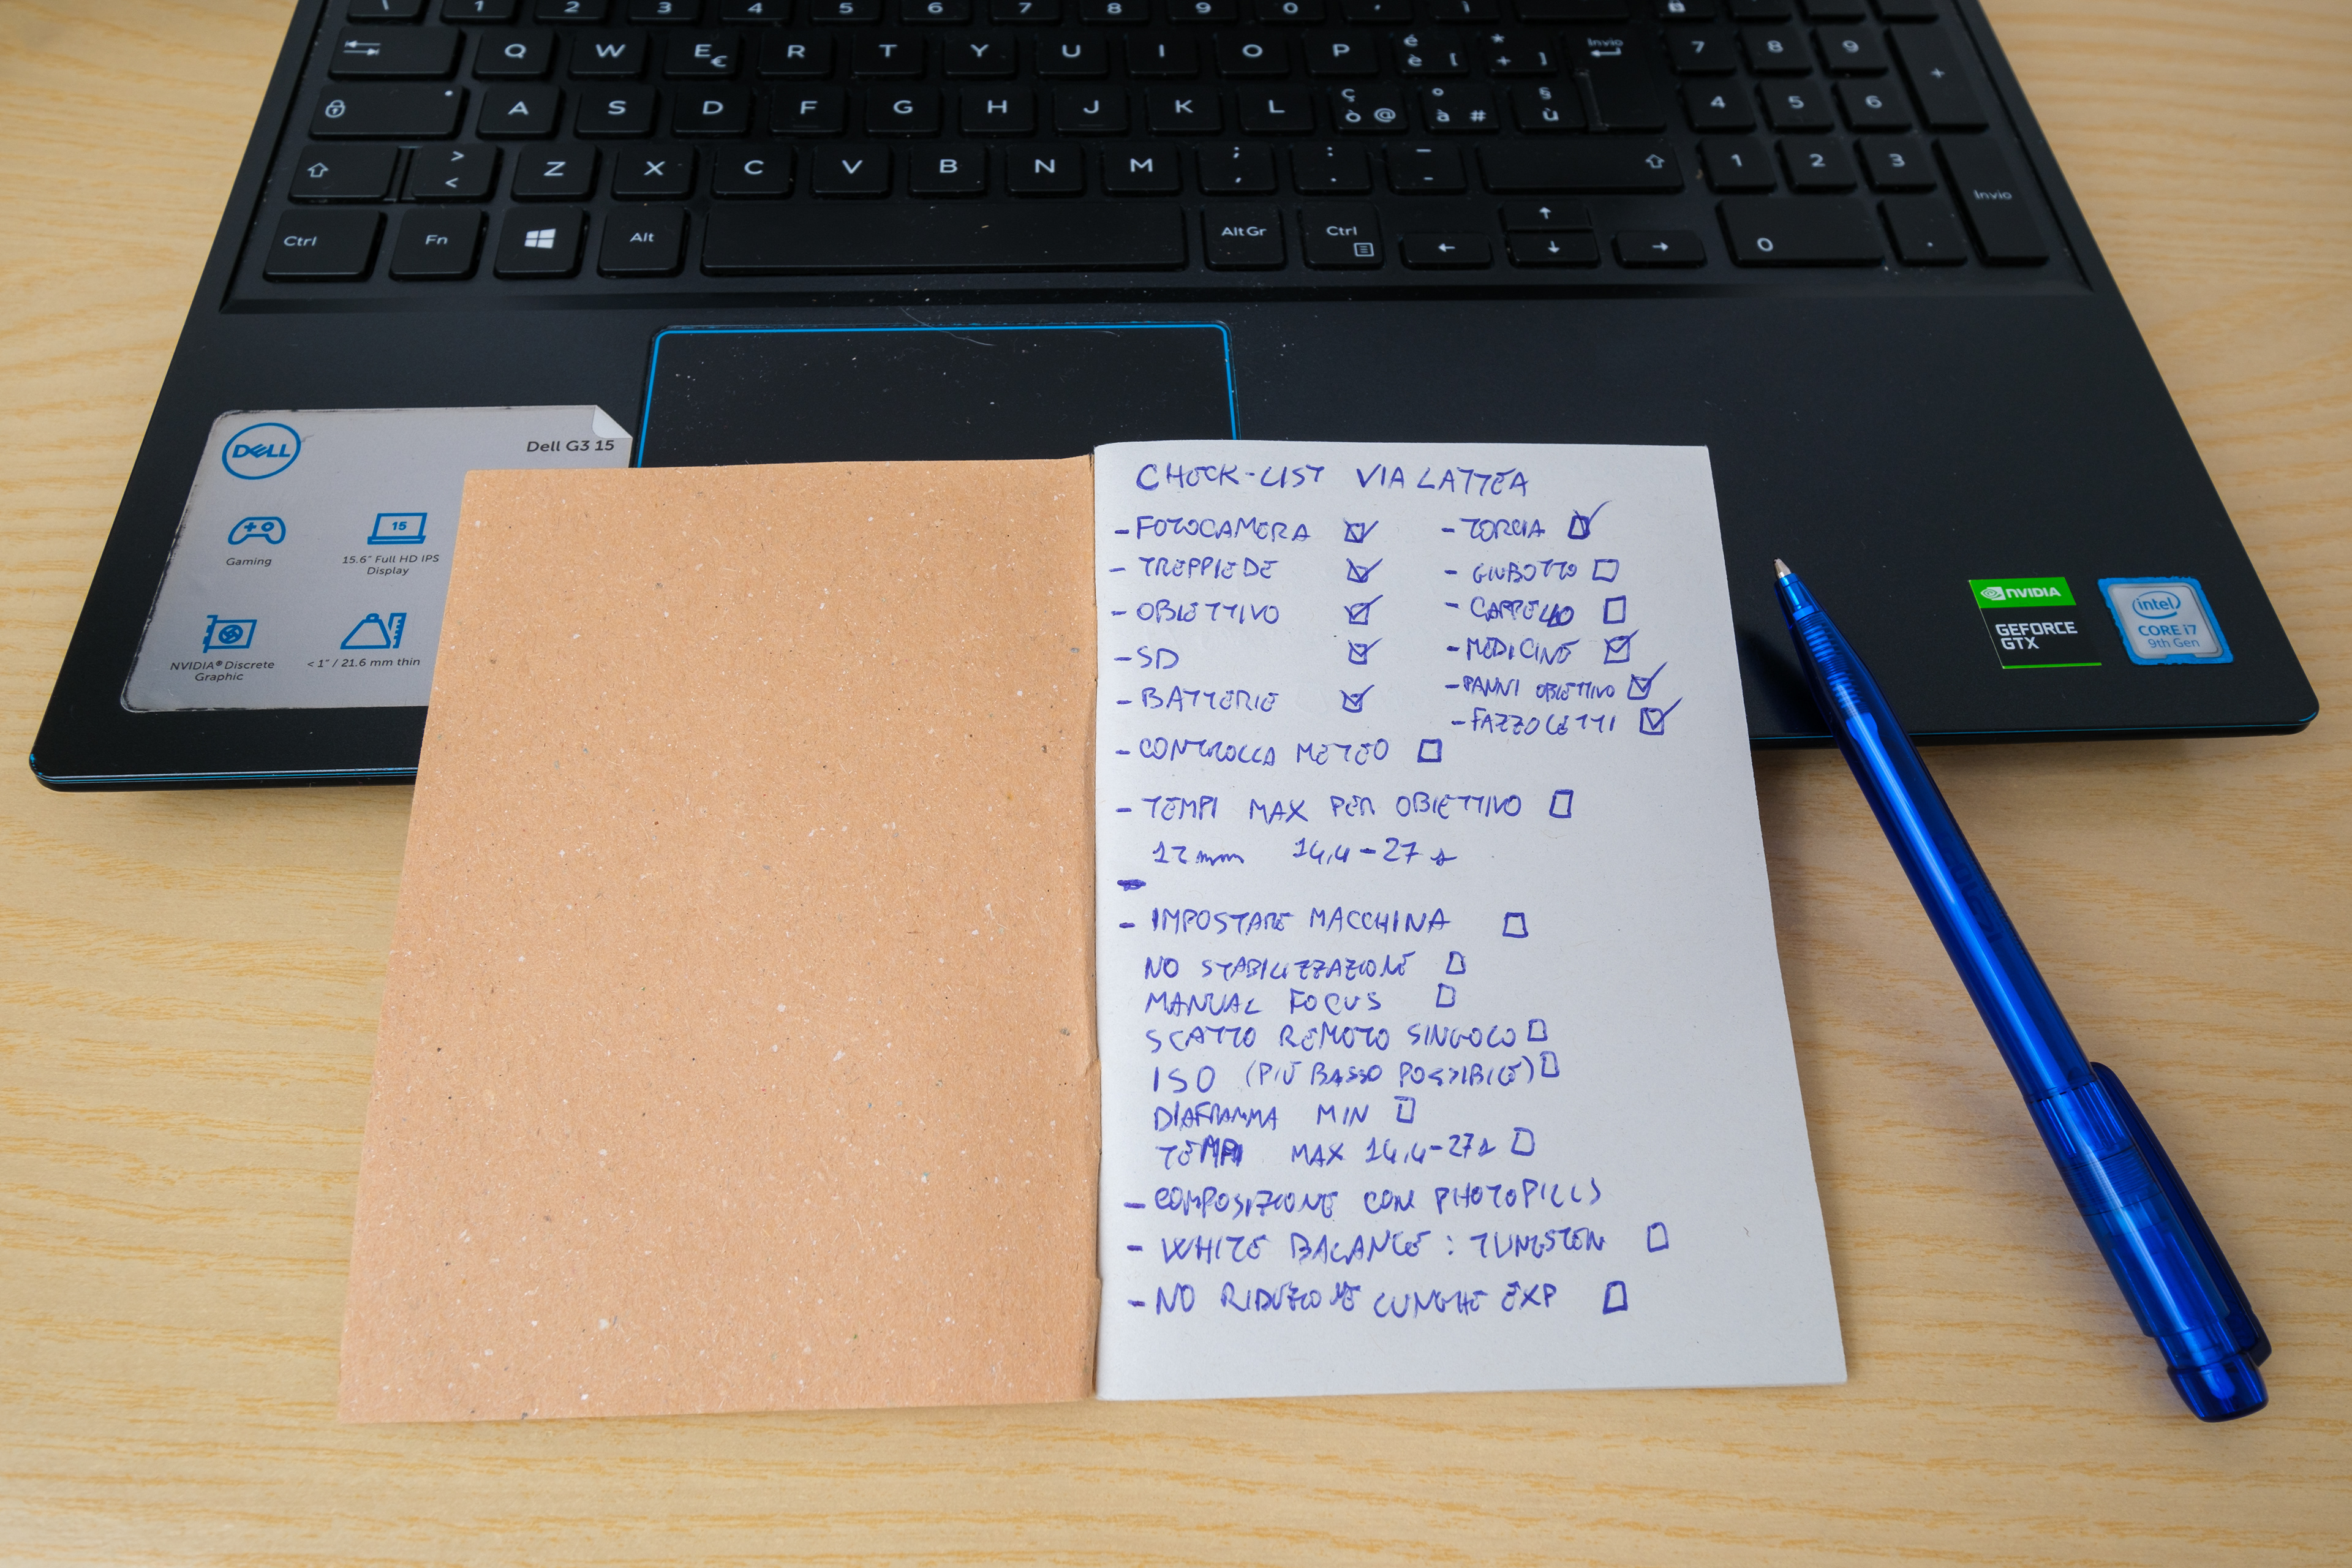 \ 1 2 3 4 5 6 7 8 9 0 ' ì
Q W E € R T Y U I O P é è [ * + ] Invio 7 8 9 +
A S D F G H J K L ç ò @ ° à # § ù 4 5 6
> < Z X C V B N M ; , : . _ - 1 2 3 Invio
Ctrl Fn Alt Alt Gr Ctrl 0 .
DELL
Dell G3 15
15
Gaming
15.6" Full HD IPS
Display
NVIDIA® Discrete
Graphic
< 1" / 21.6 mm thin
CHECK-LIST VIA LATTEA
- FOTOCAMERA ☑
- TREPPIEDE ☑
- OBIETTIVO ☑
- SD ☑
- BATTERIE ☑
- TORCIA ☑
- GIUBOTTO ☐
- CAPPELLO ☐
- MEDICINE ☑
- PANNI OBIETTIVO ☑
- FAZZOLETTI ☑
- CONTROLLA METEO ☐
- TEMPI MAX PER OBIETTIVO ☐
12 mm 14,4-27 s
- IMPOSTARE MACCHINA ☐
NO STABILIZZAZIONE ☐
MANUAL FOCUS ☐
SCATTO REMOTO SINGOLO ☐
ISO (PIÙ BASSO POSSIBILE) ☐
DIAFRAMMA MIN ☐
TEMPI MAX 14,4-27 s ☐
- COMPOSIZIONE CON PHOTOPILLS
- WHITE BALANCE : TUNGSTEN ☐
- NO RIDUZIONE LUNGHE EXP ☐
NVIDIA
GEFORCE
GTX
intel
CORE i7
9th Gen